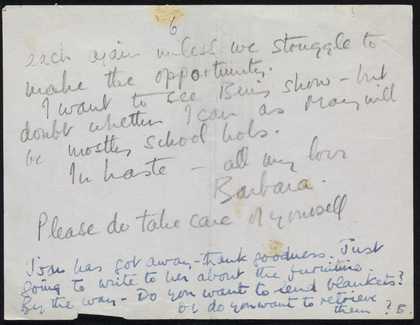 6
each again unless we struggle to
make the opportunity.
I want to see Ben's show – but
doubt whether I can as May will
be mostly school hols.
In haste – all my love
Barbara.
Please do take care of yourself
has got away – thank goodness. Just
going to write to her about the furniture.
By the way – Do you want to send blankets?
or do you want to retrieve
them? B